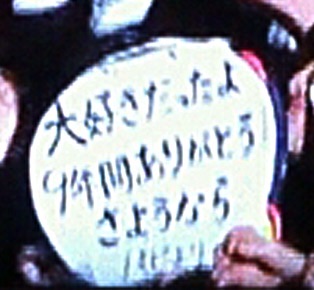 大好きだったよ
9年間ありがとう
さようなら